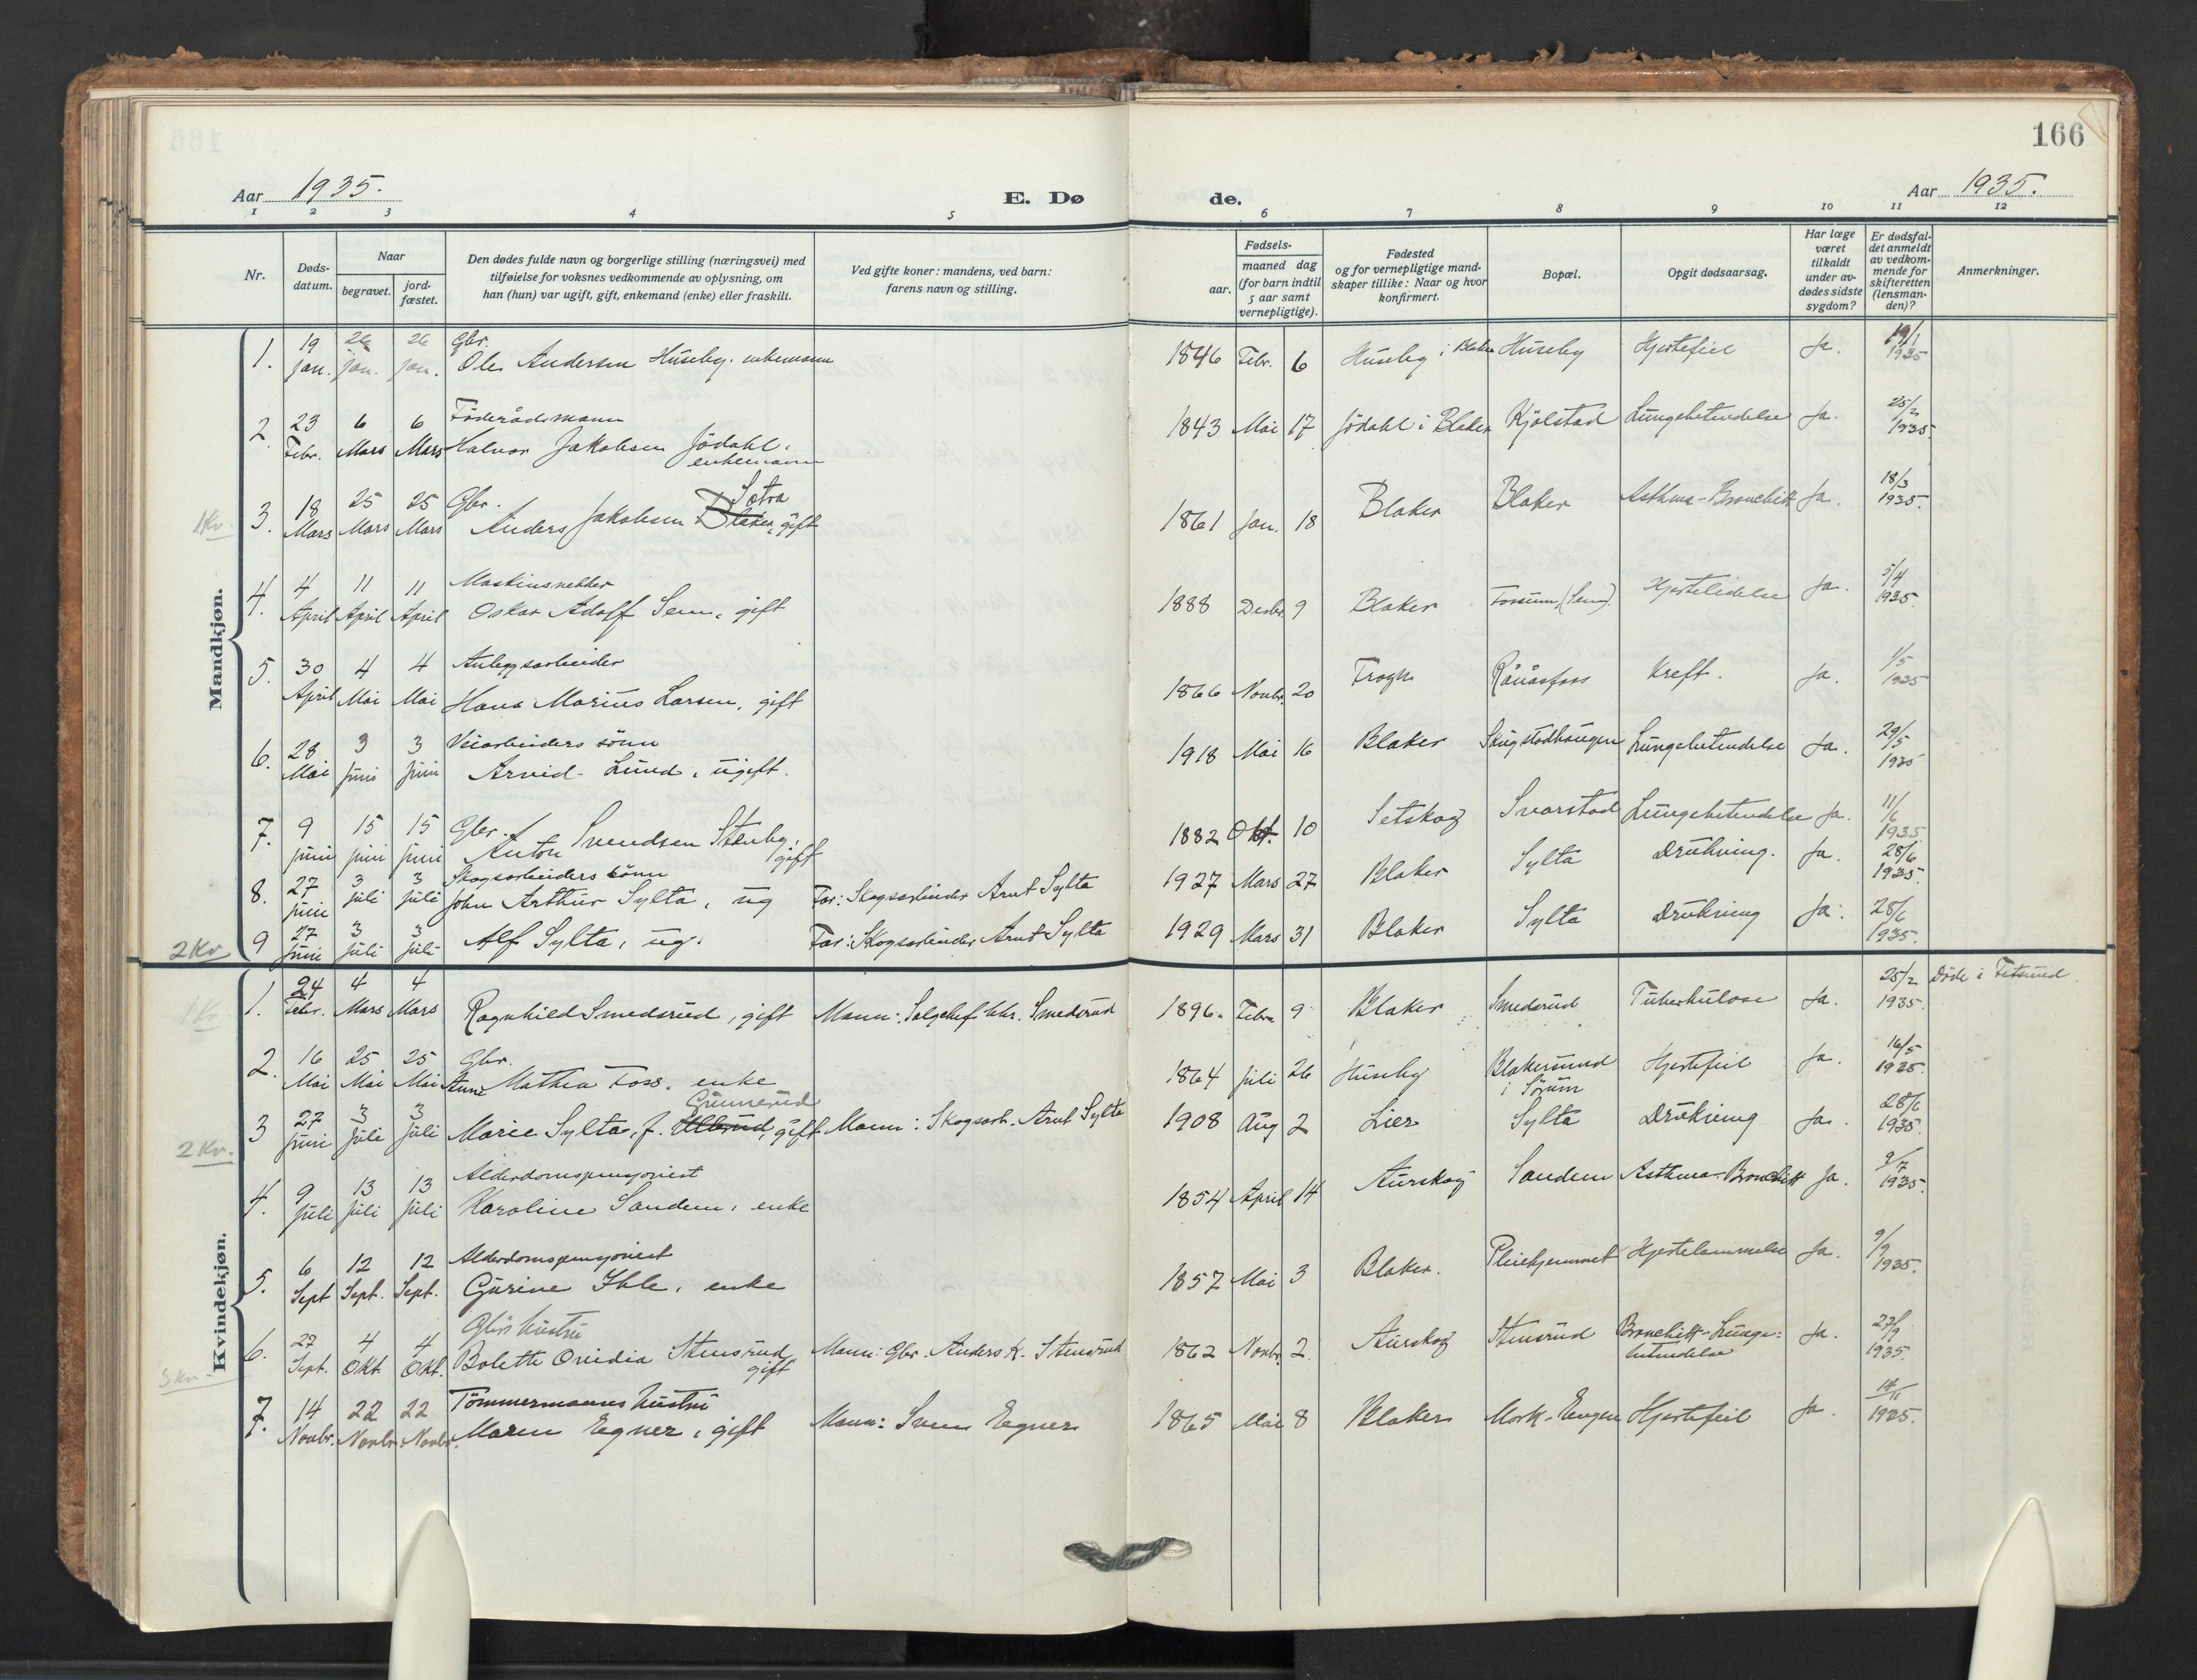 166
Aar 1935.
E. Dø
de.
Aar 1935.
1 2 3 4 5 6 7 8 9 10 11 12
Nr.
Døds-
datum.
Naar
begravet.
jord-
fæstet.
Den dødes fulde navn og borgerlige stilling (næringsvei) med
tilføielse for voksnes vedkommende av oplysning, om
han (hun) var ugift, gift, enkemand (enke) eller fraskilt.
Ved gifte koner: mandens, ved barn:
farens navn og stilling.
Fødsels-
aar.
maaned dag
(for barn indtil
5 aar samt
vernepligtige).
Fødested
og for vernepligtige mand-
skaper tillike: Naar og hvor
konfirmert.
Bopæl.
Opgit dødsaarsag.
Har læge
været
tilkaldt
under av-
dødes sidste
sygdom?
Er dødsfal-
det anmeldt
av vedkom-
mende for
skifteretten
(lensman-
den)?
Anmerkninger.
Mandkjøn.
19 26 26 Gbr. 19/1
1. jan. jan. jan. Ole Andersen Huseby. enkemann 1846 Febr. 6 Huseby i Blaker Huseby Hjertefeil Ja. 1935
23 6 6 Föderådsmann 25/2
2. Febr. Mars Mars Halvor Jakobsen Jödahl, 1843 Mai 17 Jödahl i Blaker Kjölstad Lungebetendelse Ja. 1935.
enkemann
Sotra
18 25 25 Gbr. 18/3
1 Kv. 3. Mars Mars Mars Anders Jakobsen Blaker, gift 1861 Jan. 18 Blaker Blaker Asthma-Bronchitt Ja. 1935.
4 11 11 Maskinsnekker 5/4
4. April April April Oskar Adolf Sem, gift 1888 Desbr. 9 Blaker (Sem). Hjertelidelse Ja. 1935.
30 4 4 Anleggsarbeider 1/5
5. April Mai Mai Hans Marius Larsen, gift 1866 Novbr. 20 Frogn Rånåsfoss Kreft. Ja. 1935
28 3 3 Veiarbeiders sönn 29/5
6. Mai Juni Juni Arvid Lund, ugift. 1918 Mai 16 Blaker Skugstadhaugen Lungebetendelse Ja. 1935
9 15 15 Gbr. 11/6
7. Juni Juni Juni Anton Svendsen Stenby, 1882 Okt. 10 Setskog Svarstad Lungebetendelse Ja. 1935
gift
27 3 3 Skogsarbeiders sönn 28/6
8. Juni Juli Juli John Arthur Sylta, ug Far: Skogsarbeider Arnt Sylta 1927 Mars 27 Blaker Sylta Drukning. Ja. 1935.
27 3 3 28/6
2 Kv 9 Juni Juli Juli Alf Sylta, ug. Far: Skogsarbeider Arnt Sylta 1929 Mars 31 Blaker Sylta Drukning Ja. 1935.
Kvindekjøn.
24 4 4 25/2 Döde i Fetsund.
1 Kv. 1. Febr. Mars Mars Ragnhild Smedsrud, gift Mann: Salgchef Smedsrud 1896. Febr. 9 Blaker Smedsrud Tuberkulose Ja. 1935.
16 25 25 Gbr. 16/5
2. Mai Mai Mai Anne Mathea Foss, enke 1864 Juli 26 Huseby Blakersund Hjertefeil Ja. 1935.
i Sörum
Gunnerud
27 3 3 28/6
2 Kv. 3 Juni Juli Juli Marie Sylta, f. gift Mann: Skogsarb. Arnt Sylta 1908 Aug 2 Lier Sylta Drukning Ja. 1935.
9 13 13 Alderdomspensjonist 9/7
4. Juli Juli Juli Karoline Sandem, enke 1854 April 14 Aurskog Sandem Asthma-Bronchitt Ja. 1935.
6 12 12 Alderdomspensjonist 9/9
5. Sept Sept. Sept. Gurine Ihle, enke 1857 Mai 3 Blaker. Pleiehjemmet Hjertelammelse Ja. 1935.
27 4 4 Gbrs hustru 27/9
3 Kv. 6. Sept. Okt. Okt. Bolette Ovidia Stensrud Mann: Gbr. Anders K. Stensrud 1862 Novbr. 2. Aurskog Stensrud Bronchitt-Lunge= Ja. 1935.
gift betendelse
14 22 22 Tömmermanns hustru 14/11
7. Novbr. Novbr. Novbr. Maren Egner, gift Mann: Svend Egner 1865 Mai 8 Blaker Mork-Engen Hjertefeil Ja. 1935.